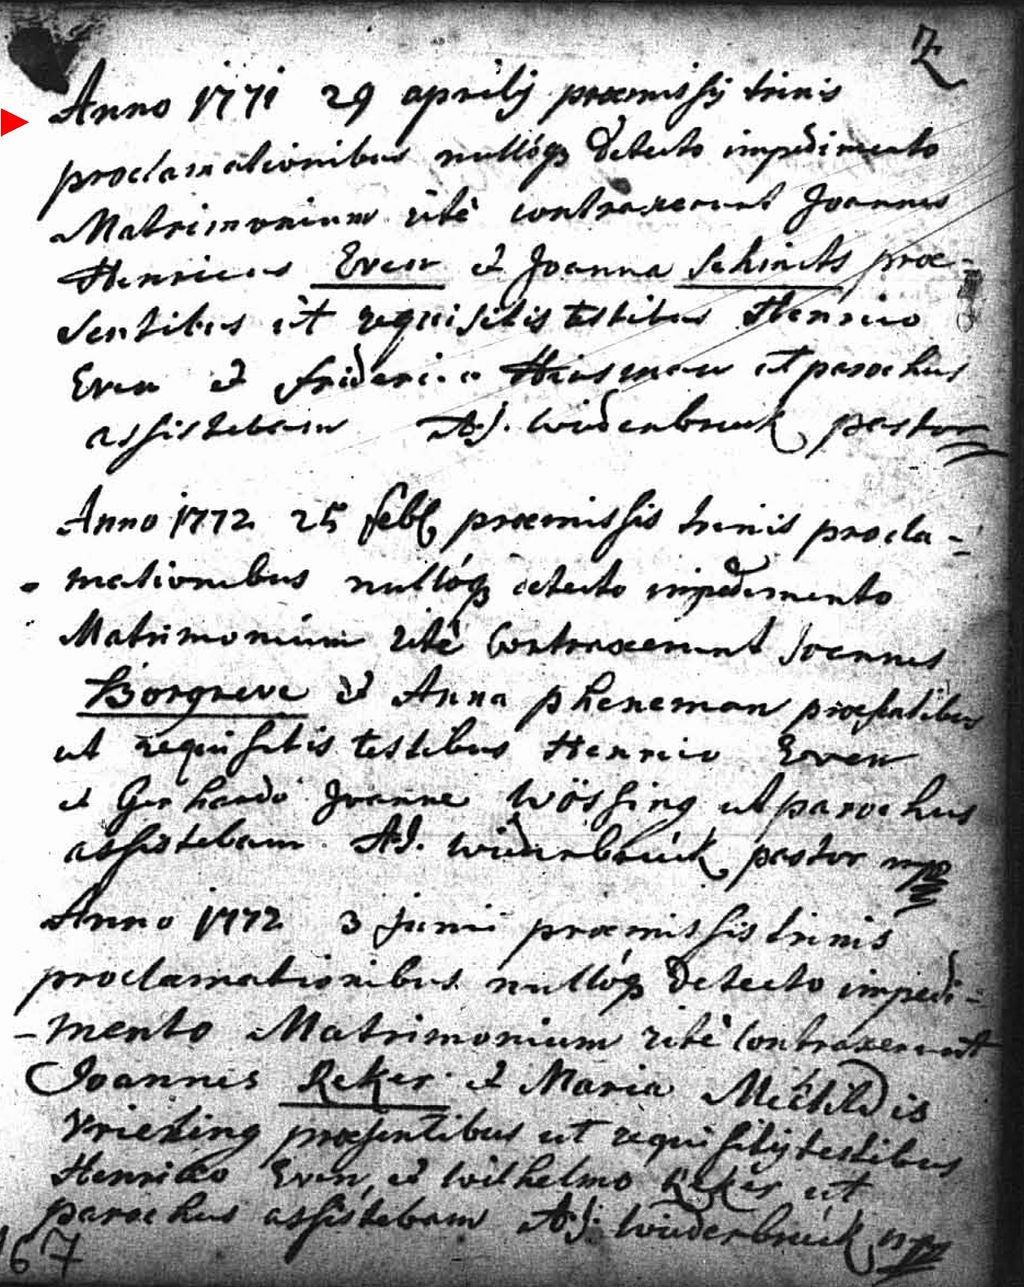 7
Anno 1771 29 aprilij praemissij trinis
proclamationibus nullóq detecto impedimento
Matrimonium ritè contraxerunt Joannes
Henricus Even et Joanna Schincts prae-
sentibus ut requisitis testibus Henrico
Even et friderico Huisman ut parochus
assistebam A.J. widenbruck pastor
Anno 1772 25 feb praemissis trinis procla-
mationibus nullóq detecto impedimento
Matrimonium ritè Contraxerunt Joannes
Borgreve et Anna pheneman praesentibus
ut requisitis testibus Henrico Even
et Gerhardo Joanne Wössing ut parochus
assistebam A.J. widenbrúck pastor mpp
Anno 1772 3 junii praemissis trinis
proclamationibus nullóq detecto impedi-
-mento Matrimonium ritè Contraxerunt
Joannes Reker et Maria Mechtildis
Vrieling praesentibus ut requisitij testibus
Henrico Even et wilhelmo Reker ut
parochus assistebam A.J. widenbrúck mpp
167